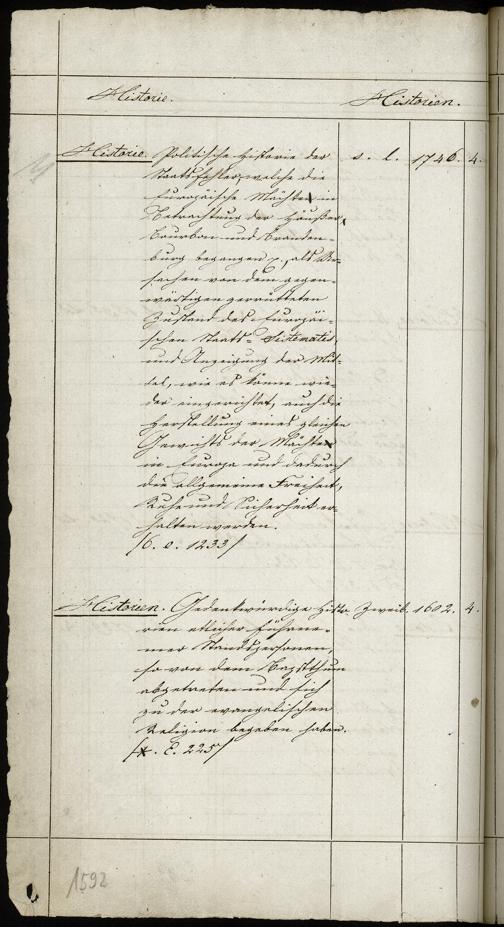 Historie. Historien.
Historie. Politische Historie der s. l. 1746. 4.
Staatsfehler, welche die
Europäische Mächten in
Betrachtung der Häußer
Bourbon und Branden-
burg begangen p., als Ur-
sachen von dem gegen-
wärtigen zerrütteten
Zustand des Europäi-
schen Staats-Sistematis,
und Anzeigung der Mit-
tel, wie es könne wie-
der eingerichtet, auch die
Herstellung eines gleichen
Gewichts der Mächten
in Europa und dadurch
die allgemeine Freiheit,
Ruhe und Sicherheit er-
halten werden.
/6. c. 1233/
Historien. Gedenkwürdige Histo- Zweib. 1602. 4.
rien etlicher Fürne-
mer Standspersonen,
so von dem Bapstthum
abgetreten und sich
zu der evangelischen
Religion begeben haben.
E. 225/
1592